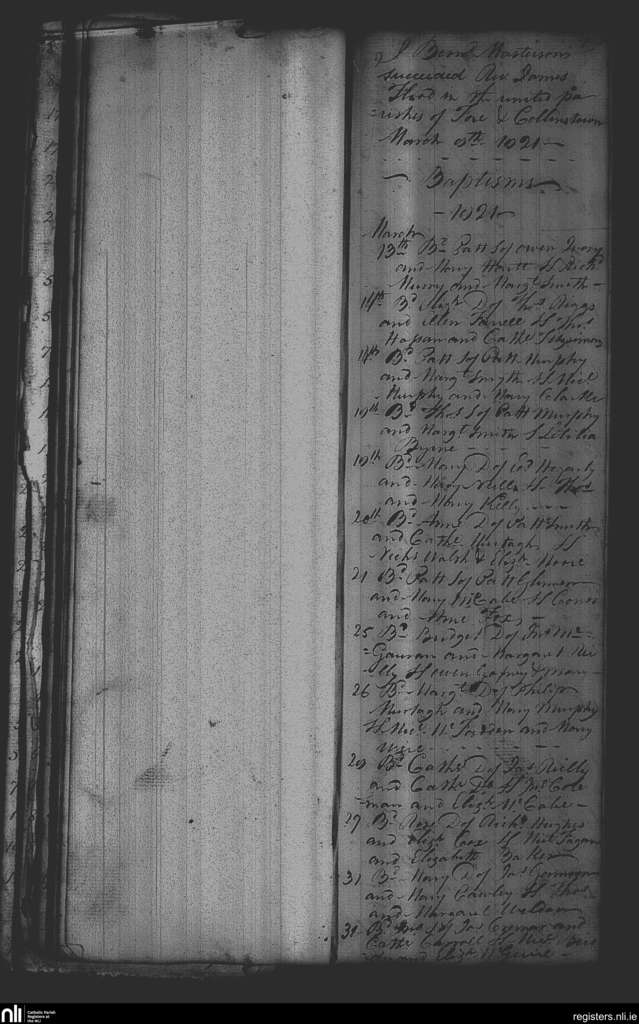 I Bernd Masterson
succeeded Rev James
Flood in the united pa
=rishes of Fore & Collinstown
March 9th 1821 —
— Baptisms —
— 1821 —
March
13th Bd Patt S of Owen Ivory
and Mary SS Richd
Murray and Margt Smith —
14th Bd Margt D of Thos Briggs
and Ellen Farrell SS Thos
and Cathe Fitzsimons
14th Bd Patt S of Patt Murphy
and Margt Smyth SS Micl
Murphy and Mary Clarke
19th Bd Thos S of Patt Murphy
and Margt Smith S Letitia
Byrne
19th Bd Mary D of Edd Hegarty
and Mary SS Thos
and Mary Kelly
20th Bd Anne D of Patt Smith
and Cathe Murtagh SS
Nichs Walsh & Elizh Moore
21 Bd Patt S of Patt Glennon
and Mary McCabe SS Connor
and Anne Fox —
25 Bd Bridget D of Frs Mc=
=Gauran and Margaret Rei
lly SS Owen Gafney & Mary
26 Bd Margt D of Philip
Murtagh and Mary Murphy
SS Micl and Mary
Weir
29 Bd Cathe D of Jas Reilly
and Cathe Do SS Jas Cole
=man and Elizh McCabe —
29 Bd Rose D of Richd Hughes
and Elizh Case SS Micl Fagan
and Elizabeth Barker
31 Bd Mary D of Jas Gormogan
and Mary Cawley SS Thos
and Margaret Weldon
31 Bd S of Jas Cormac and
Cathe Carroll SS Micl
and Elizh McGuire —
nli
Catholic Parish
Registers at
the NLI
registers.nli.ie